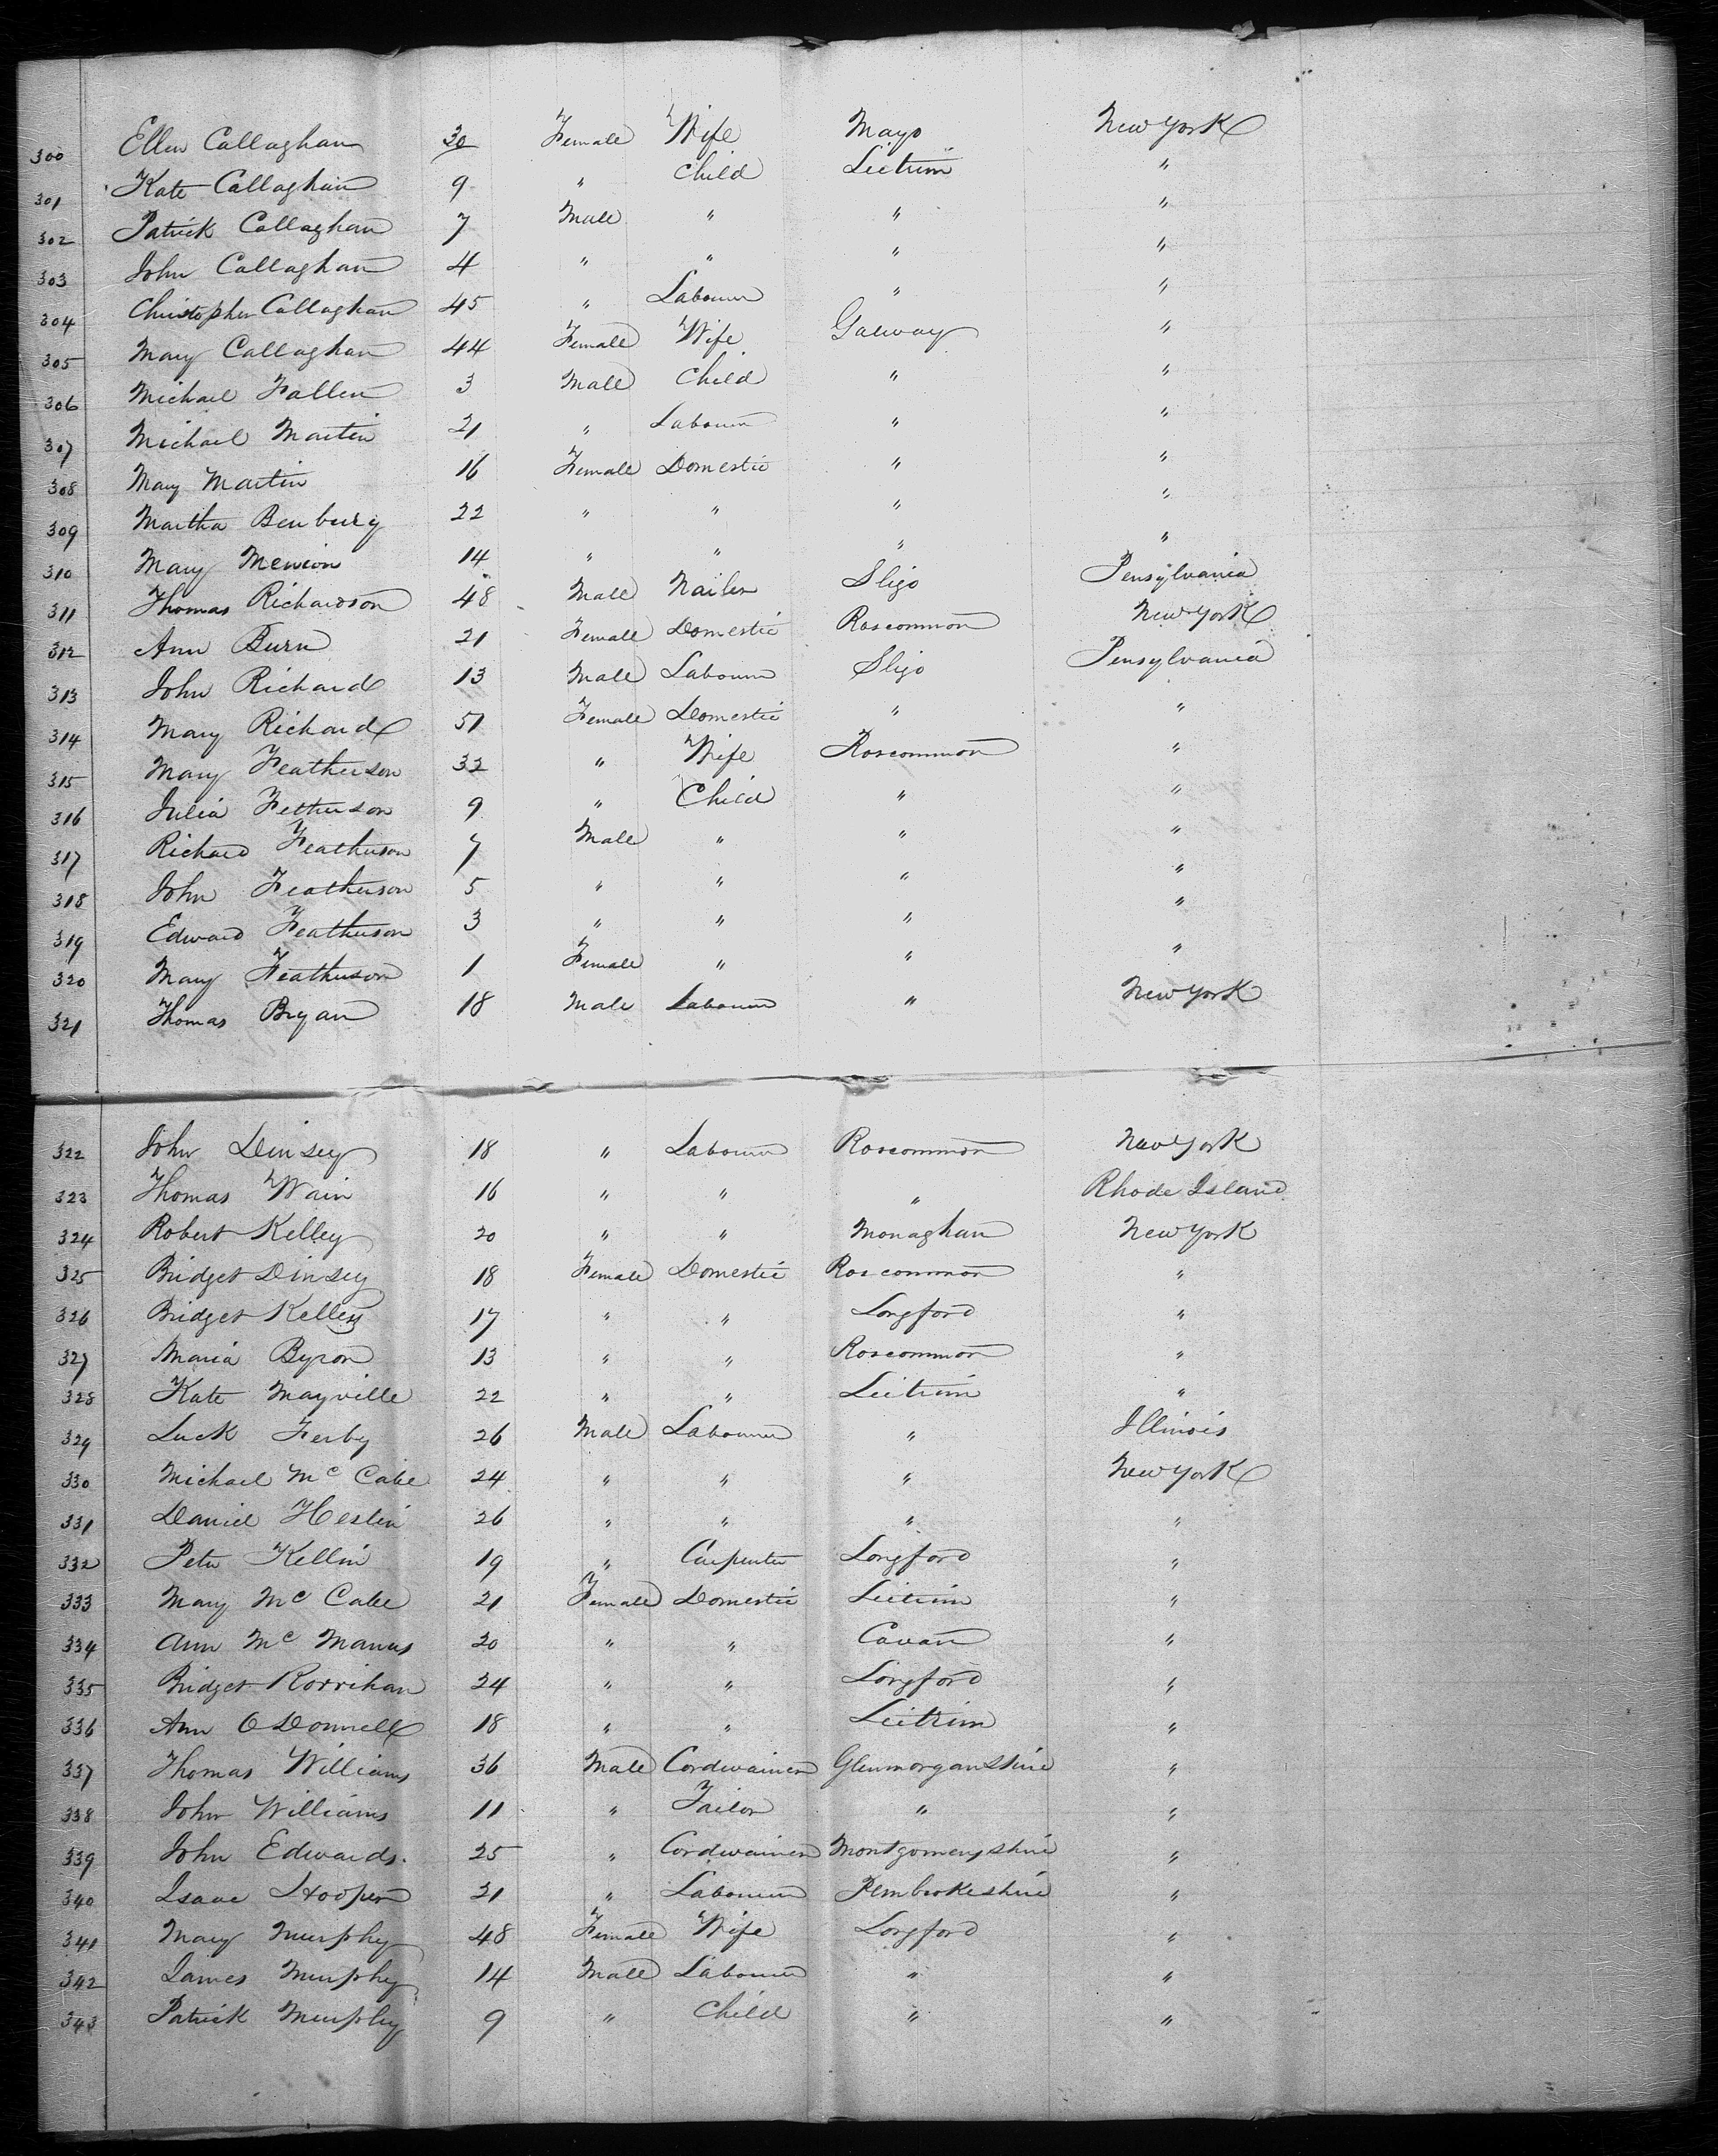 300 Ellen Callaghan 30 Female Wife Mayo New York
301 Kate Callaghan 9 " Child Leitrim "
302 Patrick Callaghan 7 Male " " "
303 John Callaghan 4 " " " "
304 Christopher Callaghan 45 " Labourer " "
305 Mary Callaghan 44 Female Wife Galway "
306 Michael Fallen 3 Male Child " "
307 Michael Martin 21 " Labourer " "
308 Mary Martin 16 Female Domestic " "
309 Martha Benbury 22 " " " "
310 Mary 14 " " " "
311 Thomas Richardson 48 Male Nailer Sligo Pensylvania
312 Ann Burn 21 Female Domestic Roscommon New York
313 John Richard 13 Male Labourer Sligo Pensylvania
314 Mary Richard 51 Female Domestic " "
315 Mary Featherson 32 " Wife Roscommon "
316 Julia Fetherson 9 " Child " "
317 Richard Featherson 7 Male " " "
318 John Featherson 5 " " " "
319 Edward Featherson 3 " " " "
320 Mary Featherson 1 Female " " "
321 Thomas Bryan 18 Male Labourer " New York
322 John Dinsey 18 " Labourer Roscommon New York
323 Thomas Wain 16 " " " Rhode Island
324 Robert Kelley 20 " " Monaghan New York
325 Bridget Dinsey 18 Female Domestic Roscommon "
326 Bridget Kelley 17 " " Longford "
327 Maria Byron 13 " " Roscommon "
328 Kate Mayville 22 " " Leitrim "
329 Luck Ferby 26 Male Labourer " Illinois
330 Michael Mc Cabe 24 " " " New York
331 Daniel Heslin 26 " " " "
332 Peter Kellin 19 " Carpenter Longford "
333 Mary Mc Cabe 21 Female Domestic Leitrim "
334 Ann Mc Manus 20 " " Cavan "
335 Bridget Korrihan 24 " " Longford "
336 Ann O Donnell 18 " " Leitrim "
337 Thomas Williams 36 Male Cordwainer Glenmorganshire "
338 John Williams 11 " Tailor " "
339 John Edwards. 25 " Cordwainer Montgomeryshire "
340 Isaac Hooper 21 " Labourer Pembrokeshire "
341 Mary Murphy 48 Female Wife Longford "
342 James Murphy 14 Male Labourer " "
343 Patrick Murphy 9 " Child " "